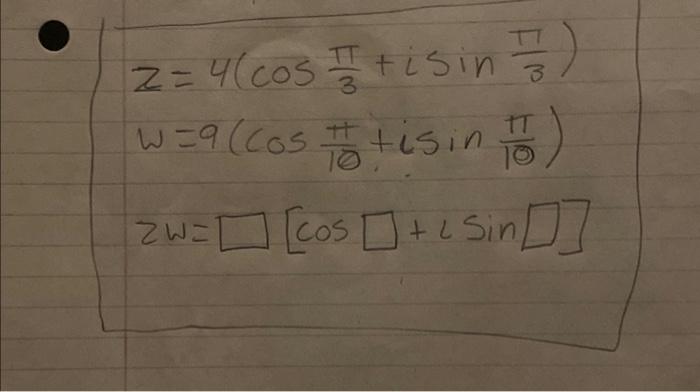 z = 4(cos π/3 + i sin π/3)
w = 9(cos π/10 + i sin π/10)
zw = □ [cos □ + i sin □]